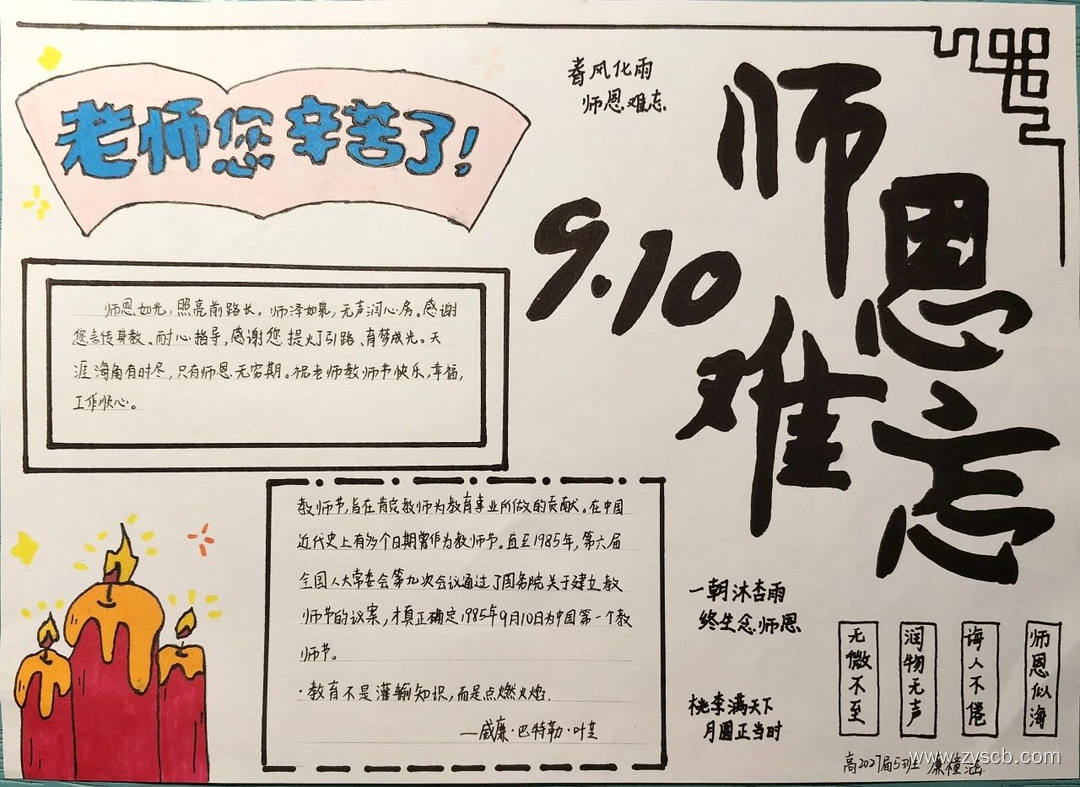 老师您辛苦了!
春风化雨
师恩难忘
师恩难忘
9.10
师恩如光,照亮前路长。师泽如泉,无声润心房。感谢
您言传身教、耐心指导,感谢您提灯引路、育梦成光。天
涯海角有时尽,只有师恩无穷期。祝老师教师节快乐,幸福,
工作顺心。
教师节,旨在肯定教师为教育事业所做的贡献。在中国
近代史上有多个日期曾作为教师节。直至1985年,第六届
全国人大常委会第九次会议通过了国务院关于建立教
师节的议案,才真正确定1985年9月10日为中国第一个教
师节。
·教育不是灌输知识,而是点燃火焰.
—威廉·巴特勒·叶芝
一朝沐杏雨
终生念师恩
桃李满天下
月圆正当时
无微不至
润物无声
诲人不倦
师恩似海
高2027届5班 康橦涵
www.zyscb.com